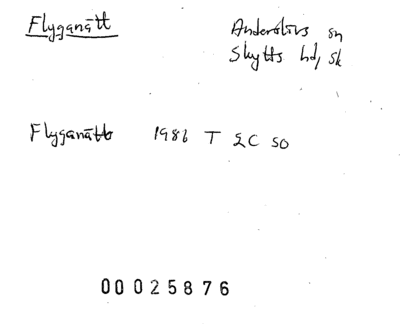 Flyganätt
Anderslövs sn
Skytts hd, Sk
Flyganätt 1986 T ΣC SO
00025876